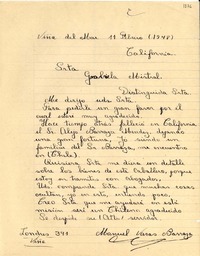 2
1826
Viña del Mar 11 Febrero (1948)
California
Srta
Gabriela Mistral.
Distinguida Srta.
Me dirijo a Ud. Srta.
Para pedirle un gran favor por el
cual estaré muy agradecido.
Hace tiempo atras fallecio en California
el Sr. Alejo Barraza Mondey, dejando
una gran fortuna, yo como soy un
familiar del Sr Barraza, me encuentro
en (Chile).
Quisiera, Srta me diera un detalle
sobre los bienes de este Caballero, porque
estoy en tramites con Abogados.
Ud. comprende Srta que muchas cosas
quedan, yo por estar en esta, entiendo poco.
Creo Srta que me ayudará en esta
misión, será un Chileno agradecido
Se despide su (Atto) servidor
Londres 391
Viña
Manuel Varas Barraza